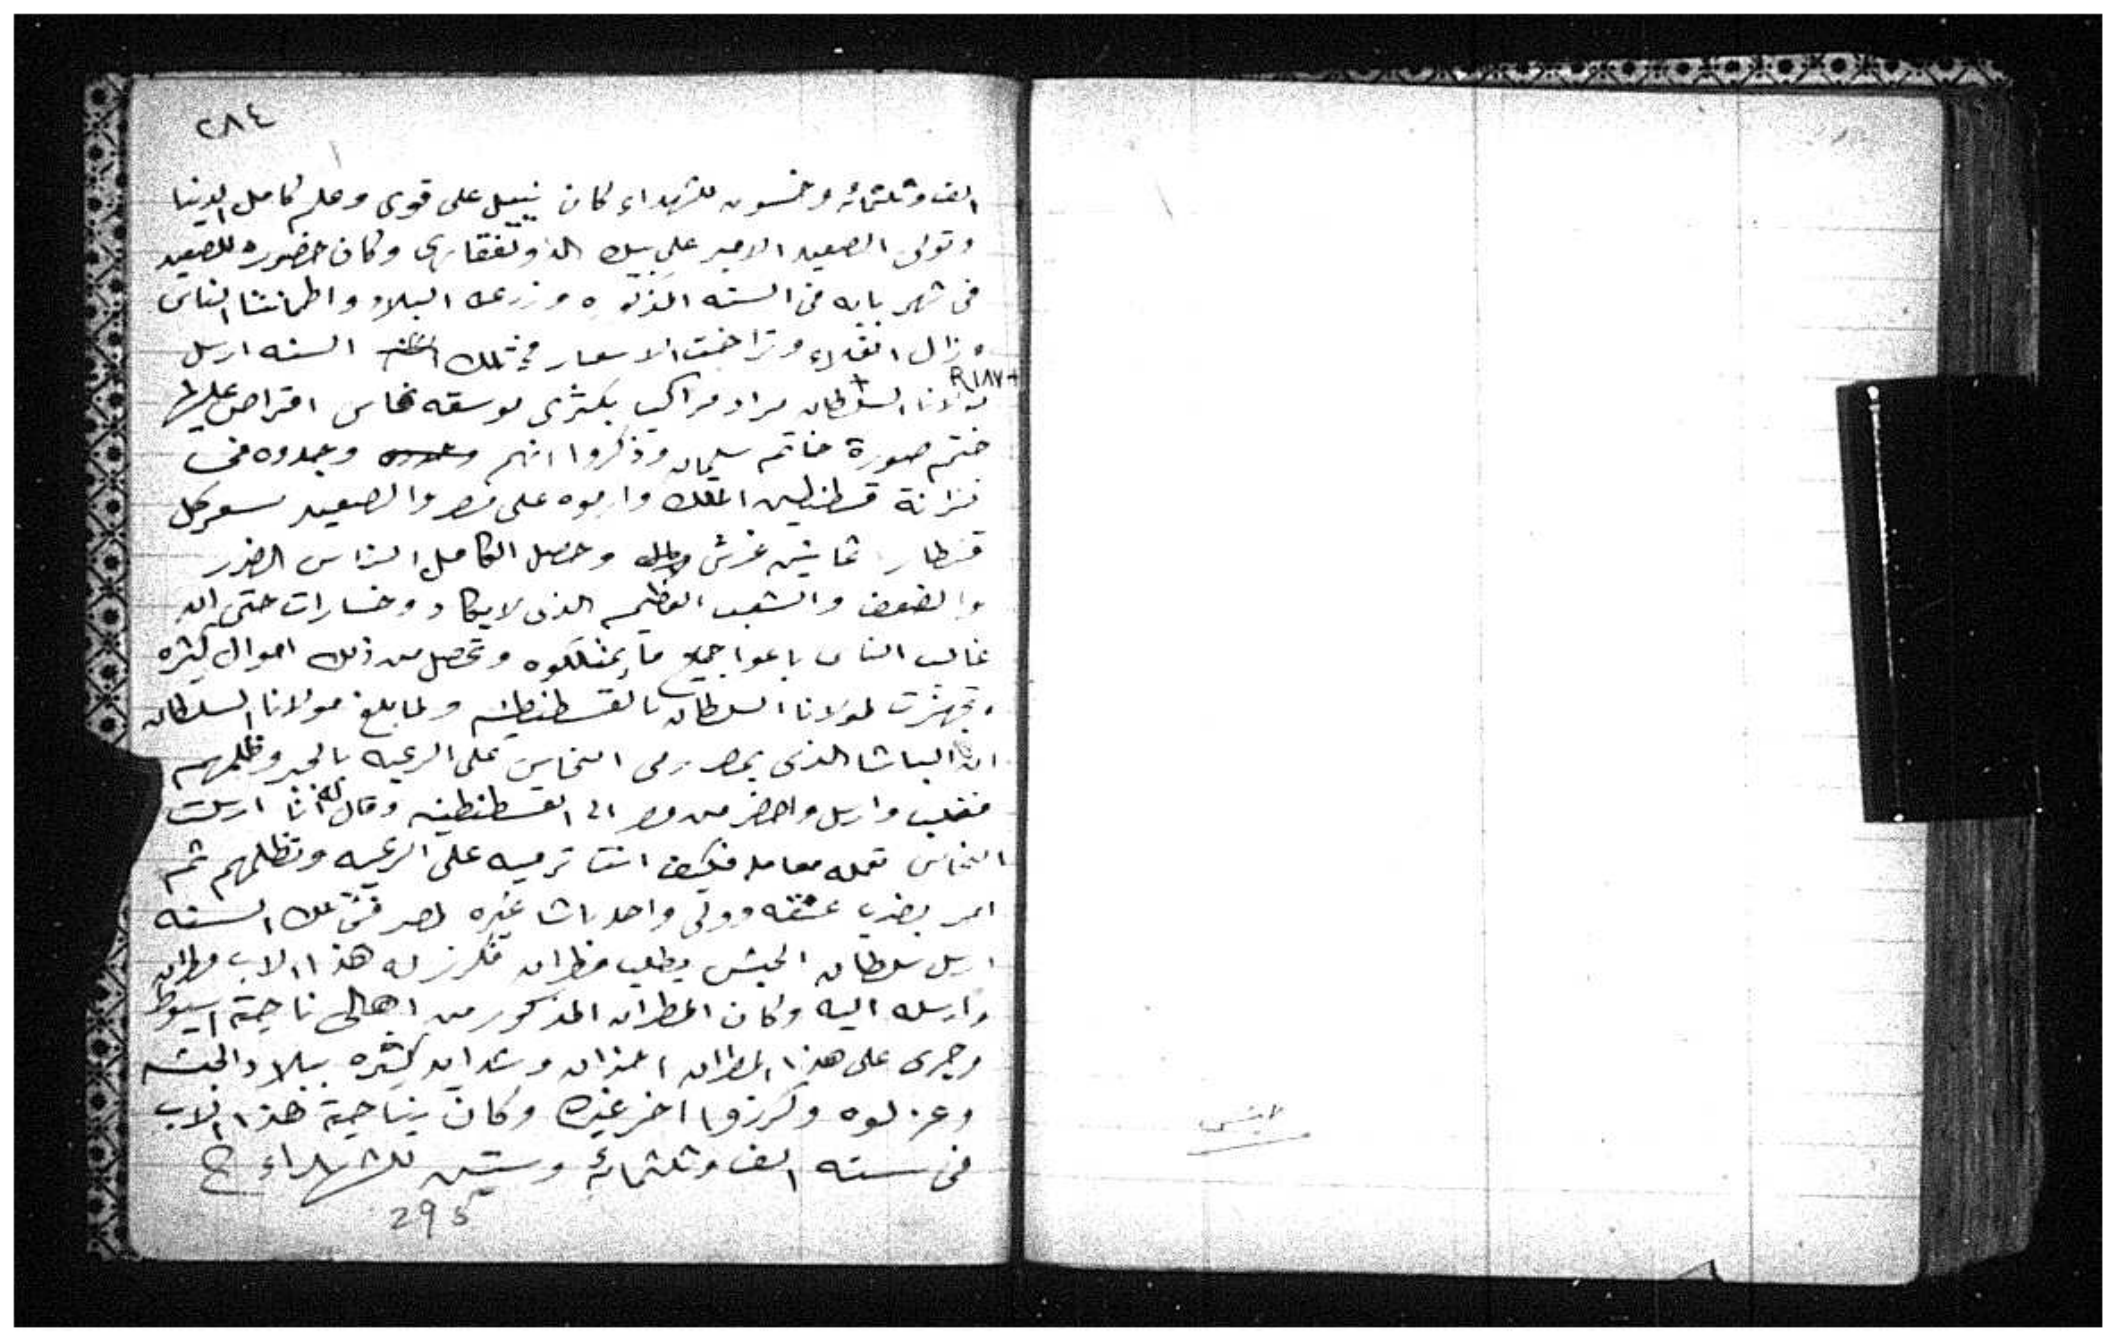 ٢٨٤
الف وثلثمائه وخمسون للشهداء كان نيل على قوى وعلم كامل الدنيا
وتولى الصعيد الامير على بيك الذولفقارى وكان حضوره للصعيد
فى شهر بابه فى السنه المذكوره وزرعت البلاد واطمانتا الناس
وزال الغلاء وتراخت الاسعار وفى تلك السنه ارسل
R ١٨٧ +
مولانا السلطان مراد مراكب بكثرى موسقه نحاس اقراص عليها
ختم صورة خاتم سليمان وذكروا انهم وجدوه فى
خزانة قسطنطين الملك وارموه على مصر والصعيد سعر كل
قنطار ثمانين غرش وحصل الكامل الناس الضرر
والضعف والتعب العظيم الذى لا يكاد وخسارات حتى ان
غالب الناس باعوا جميع ما يمتلكوه وتحصل من ذلك اموال كثيره
وتجهزت لمولانا السلطان بالقسطنطينيه ولما بلغ مولانا السلطان
ان الباشا الذى بمصر رمى النحاس على الرعيه بالجبر وظلمهم
فغلب وارسل واحضر من مصر الى القسطنطينيه وقال له انا ارسلت
النحاس تعمله معامله فكيف انتا ترميه على الرعيه وتظلمهم ثم
امر بضرب عنقه وولى واحد باشا غيره لمصر فى تلك السنه
ارسل سلطان الحبش يطلب مطران فكرز له هذا الاب مطران
وارسله اليه وكان المطران المذكور من اهالى ناحية اسيوط
وجرى على هذا المطران احزان وشدايد كثيره ببلاد الحبشه
وعزلوه وكرزوا اخر غيره وكان بنياحة هذا الاب
فى سنه الف وثلثمائه وستين للشهداء
295